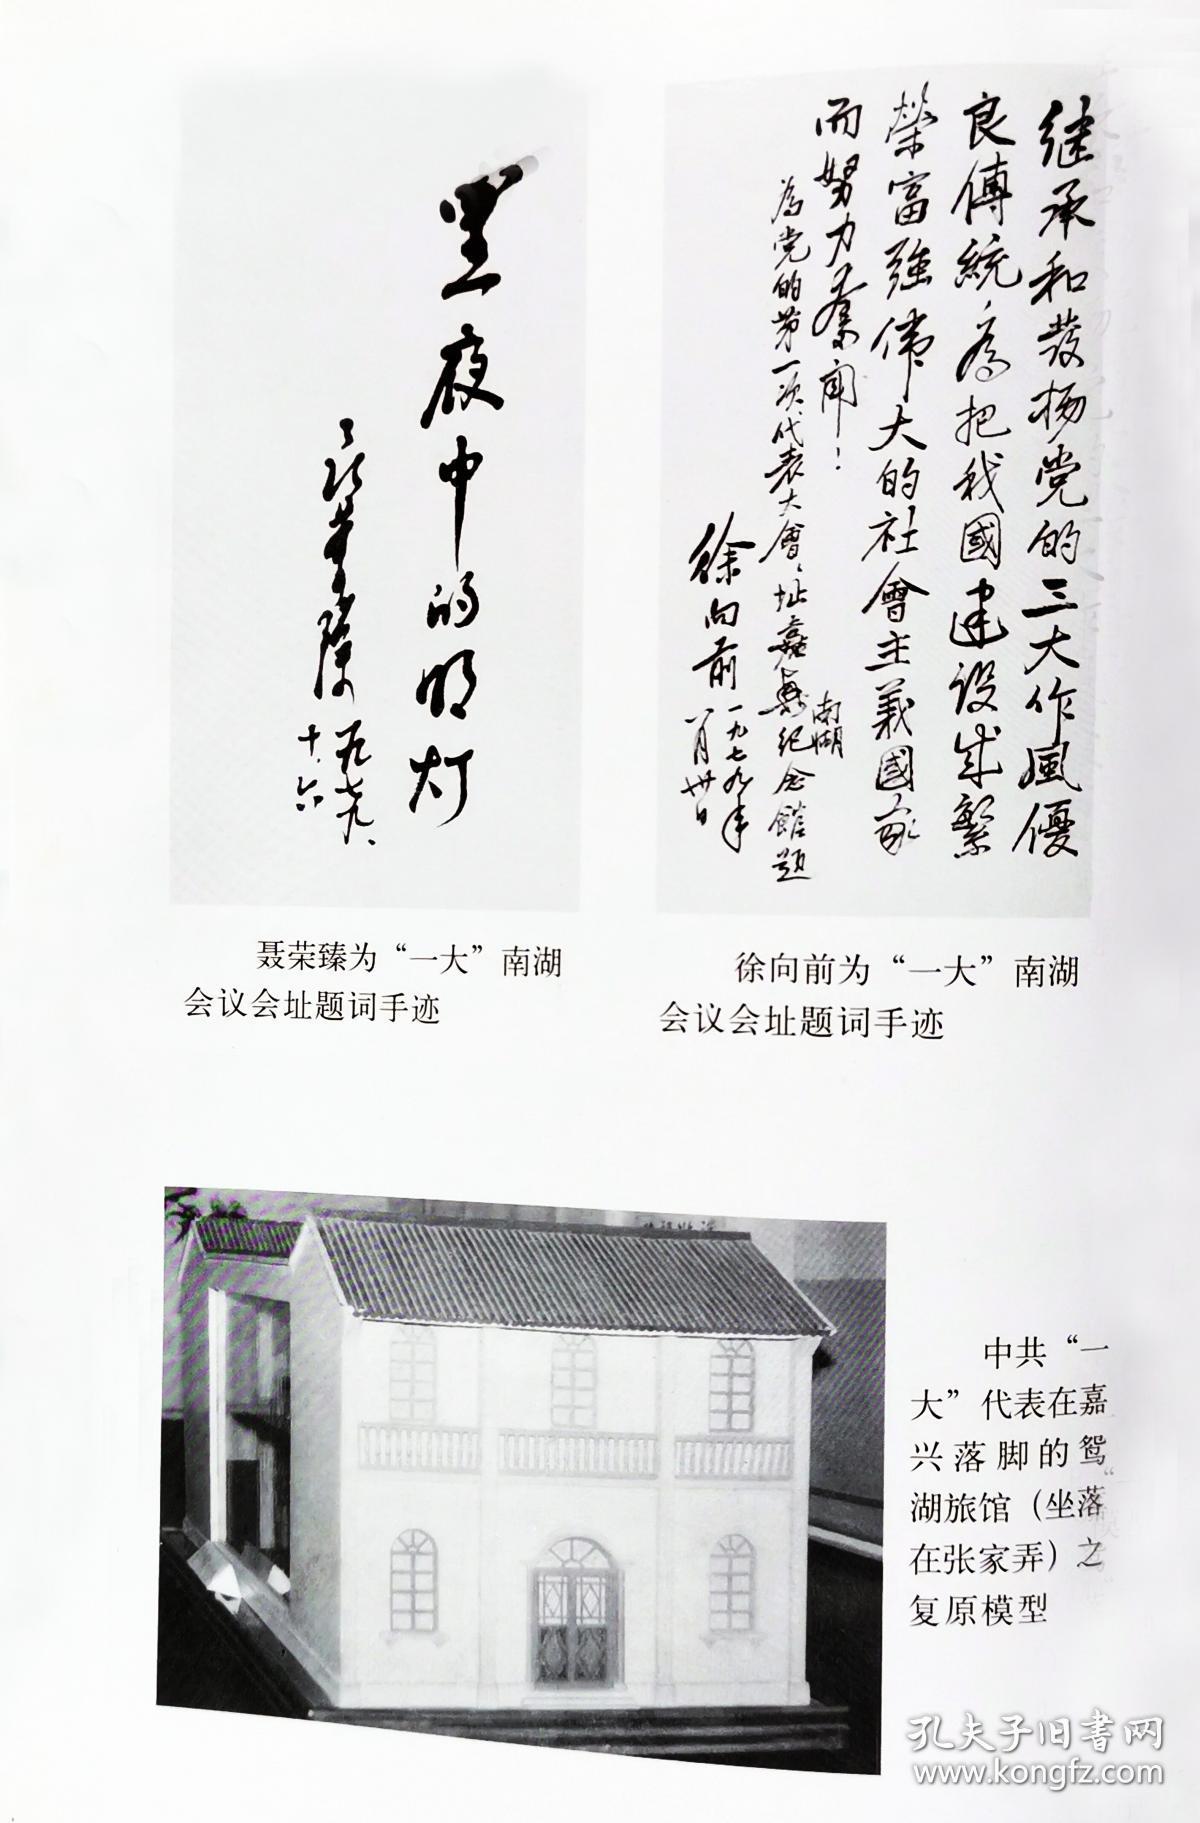 继承和發扬党的三大作風優
良傳統，為把我國建设成繁
榮富強偉大的社會主義國家
而努力奋闘！
為党的第一次代表大會、址嘉興南湖纪念館題
徐向前
一九七九年
八月卅日
黑夜中的明灯
聂荣臻
一九七九、
十、六
聂荣臻为“一大”南湖
会议会址题词手迹
徐向前为“一大”南湖
会议会址题词手迹
中共“一
大”代表在嘉
兴落脚的鸳
湖旅馆（坐落
在张家弄）之
复原模型
孔夫子旧书网
www.kongfz.com